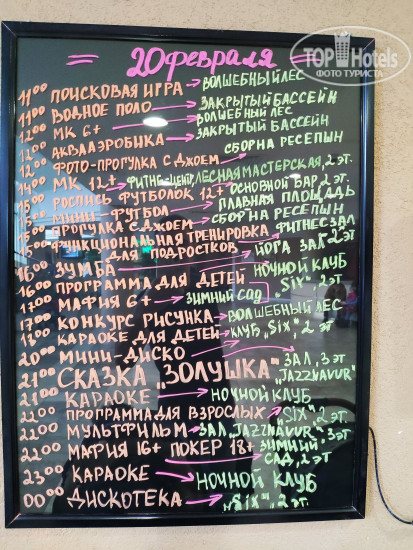 TOPHotels
ФОТО ТУРИСТА
= 20 февраля =
11⁰⁰ ПОИСКОВАЯ ИГРА → ВОЛШЕБНЫЙ ЛЕС
11⁰⁰ ВОДНОЕ ПОЛО → ЗАКРЫТЫЙ БАССЕЙН
12⁰⁰ МК 6+ → ВОЛШЕБНЫЙ ЛЕС
12⁰⁰ АКВААЭРОБИКА → ЗАКРЫТЫЙ БАССЕЙН
12⁰⁰ ФОТО-ПРОГУЛКА С ДЖОЕМ СБОР НА РЕСЕПШН
14⁰⁰ МК 12+ → ФИТНЕС-ЦЕНТР, ЛЕСНАЯ МАСТЕРСКАЯ, 2 ЭТ.
15⁰⁰ РОСПИСЬ ФУТБОЛОК 12+ ОСНОВНОЙ БАР, 2 ЭТ.
15⁰⁰ МИНИ-ФУТБОЛ → ГЛАВНАЯ ПЛОЩАДЬ
15⁰⁰ ПРОГУЛКА С ДЖОЕМ → СБОР НА РЕСЕПШН
15⁰⁰ ФУНКЦИОНАЛЬНАЯ ТРЕНИРОВКА ДЛЯ ПОДРОСТКОВ → ФИТНЕС ЗАЛ 2 ЭТ
16⁰⁰ ЗУМБА → ЙОГА ЗАЛ
16⁰⁰ ПРОГРАММА ДЛЯ ДЕТЕЙ НОЧНОЙ КЛУБ „SIX”, 2 ЭТ
17⁰⁰ МАФИЯ 6+ → ЗИМНИЙ САД
17⁰⁰ КОНКУРС РИСУНКА → ВОЛШЕБНЫЙ ЛЕС
17⁰⁰ КАРАОКЕ ДЛЯ ДЕТЕЙ → КЛУБ „SIX”, 2 ЭТ
20⁰⁰ МИНИ-ДИСКО
21⁰⁰ СКАЗКА „ЗОЛУШКА” → ЗАЛ, 3 ЭТ „JAZZNAVUR”
21⁰⁰ КАРАОКЕ → НОЧНОЙ КЛУБ
22⁰⁰ ПРОГРАММА ДЛЯ ВЗРОСЛЫХ → „SIX”, 2 ЭТ.
22⁰⁰ МУЛЬТФИЛЬМ → ЗАЛ „JAZZNAVUR”, 3 ЭТ
22⁰⁰ МАФИЯ 16+ ПОКЕР 18+ → ЗИМНИЙ САД, 2 ЭТ
23⁰⁰ КАРАОКЕ → НОЧНОЙ КЛУБ
00⁰⁰ ДИСКОТЕКА → „SIX”, 2 ЭТ.